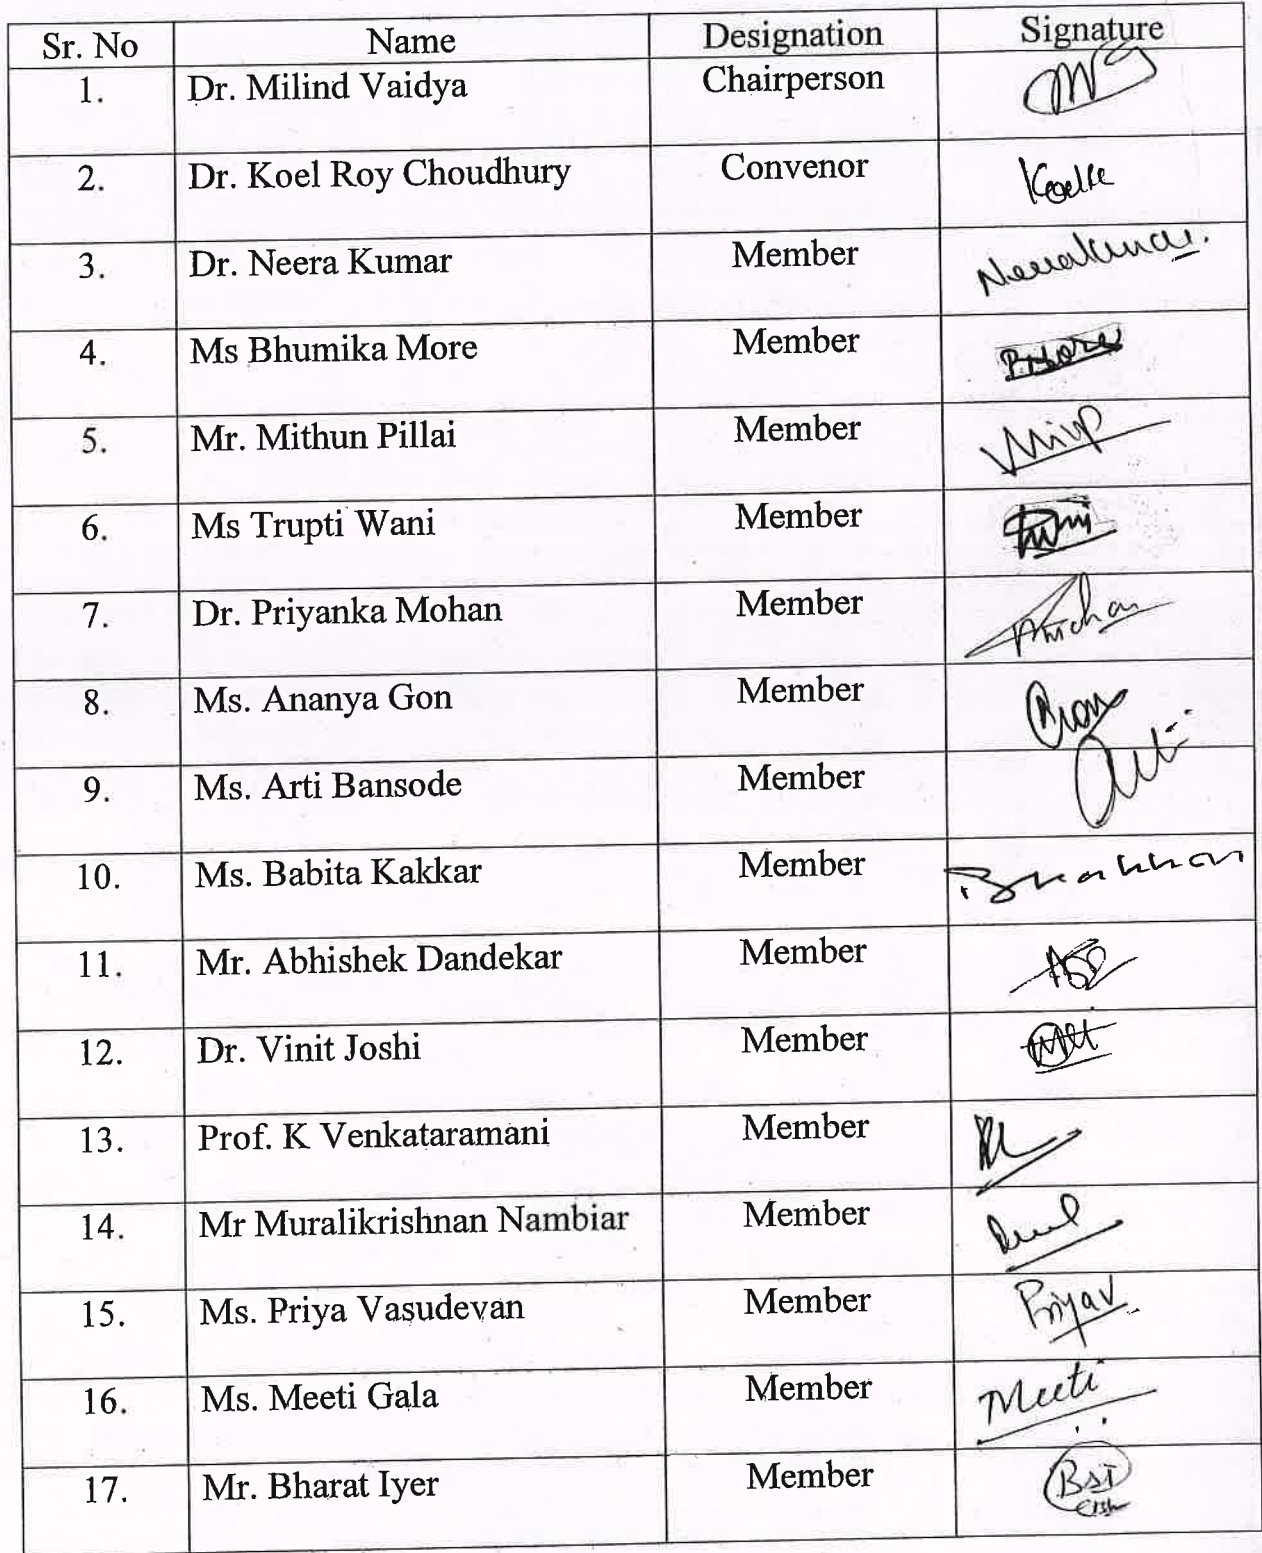 Sr. No Name Designation Signature
1. Dr. Milind Vaidya Chairperson
2. Dr. Koel Roy Choudhury Convenor
3. Dr. Neera Kumar Member Neerakumar.
4. Ms Bhumika More Member
5. Mr. Mithun Pillai Member
6. Ms Trupti Wani Member
7. Dr. Priyanka Mohan Member
8. Ms. Ananya Gon Member
9. Ms. Arti Bansode Member
10. Ms. Babita Kakkar Member
11. Mr. Abhishek Dandekar Member
12. Dr. Vinit Joshi Member
13. Prof. K Venkataramani Member
14. Mr Muralikrishnan Nambiar Member
15. Ms. Priya Vasudevan Member Priyav
16. Ms. Meeti Gala Member Meeti
17. Mr. Bharat Iyer Member